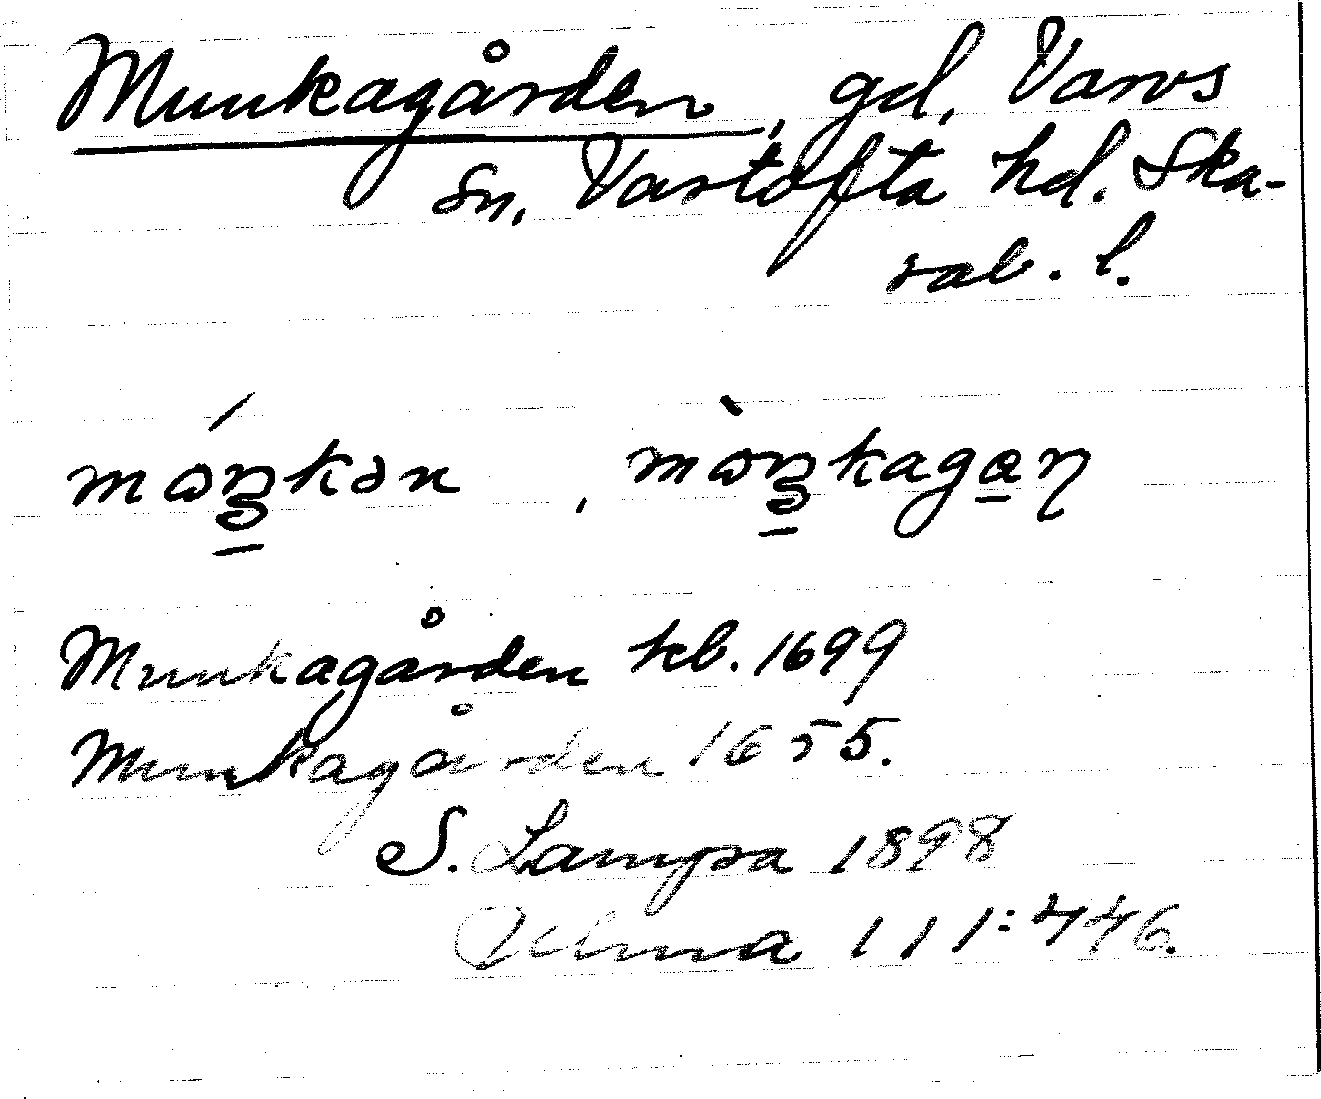 Munkagården, gd, Varvs
sn, Vartofta hd. Ska-
rab. l.
mớŋkən , mòŋkagaɳ
Munkagården kb. 1699
Munkagården 1655.
S. Lampa 1898
Ulma 111:446.